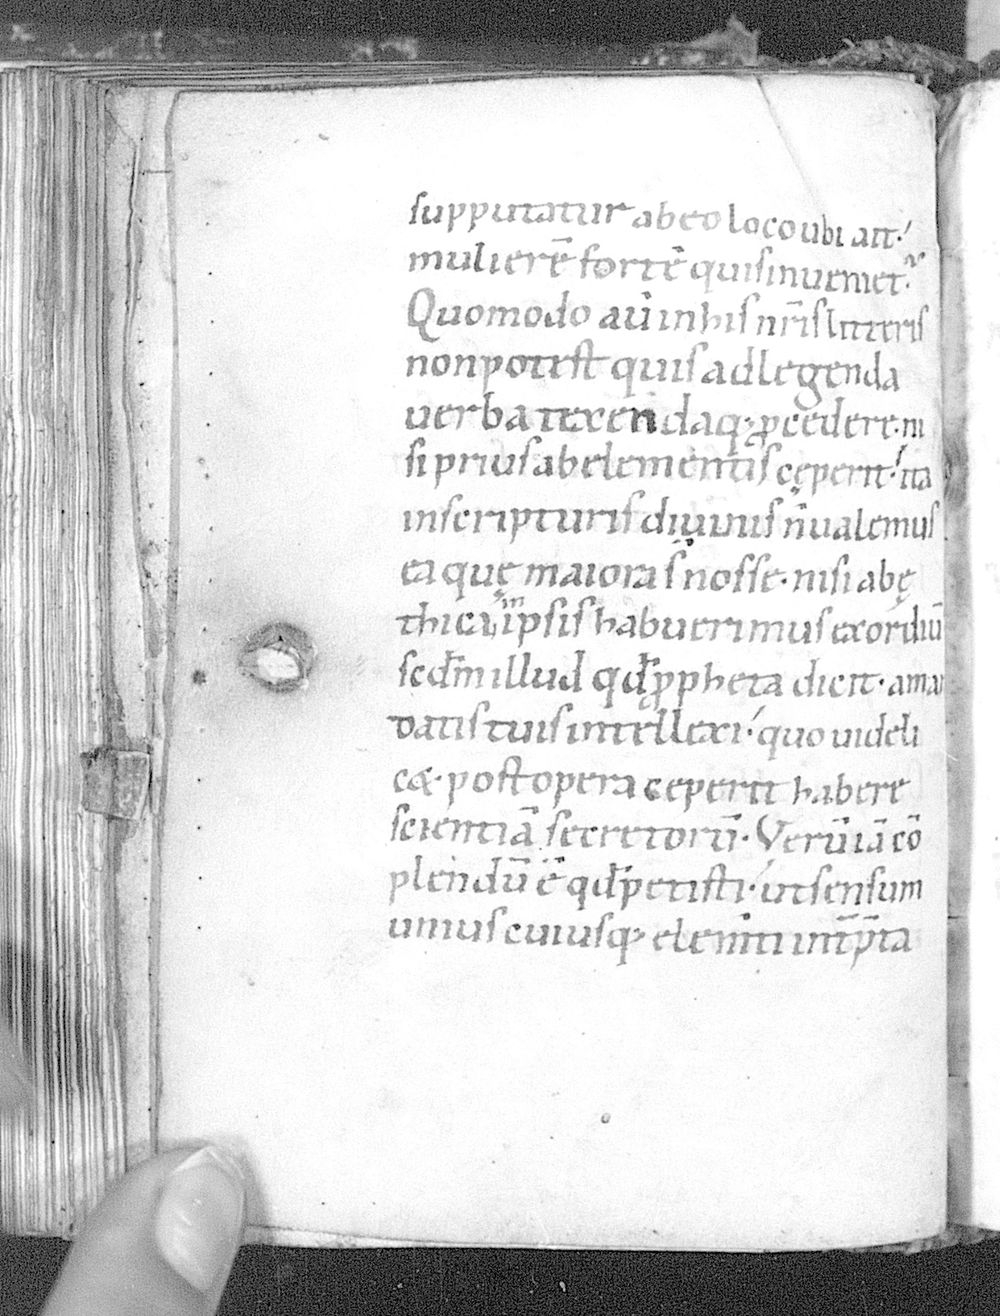 supputatur ab eo loco ubi ait.
mulierē fortē quis inueniet.
Quomodo aū in his nr̄is litteris
non potest quis ad legenda
uerba texendaq; ꝓcedere. ni
si prius ab elementis cęperit. ita
in scripturis diuinis n̄ ualemus
ea quę maioras nosse. nisi ab ę
thica in ipsis habuerimus exordiū
scdm̄ illud qd ꝓpheta dicit. a man
datis tuis intellexi. quo uideli
cæ. post opera ceperit habere
scientiā secretorū. Verū iā cō
plendū ē qd petisti. ut sensum
unius cuiusq; elem̄ti int̄p̄ta